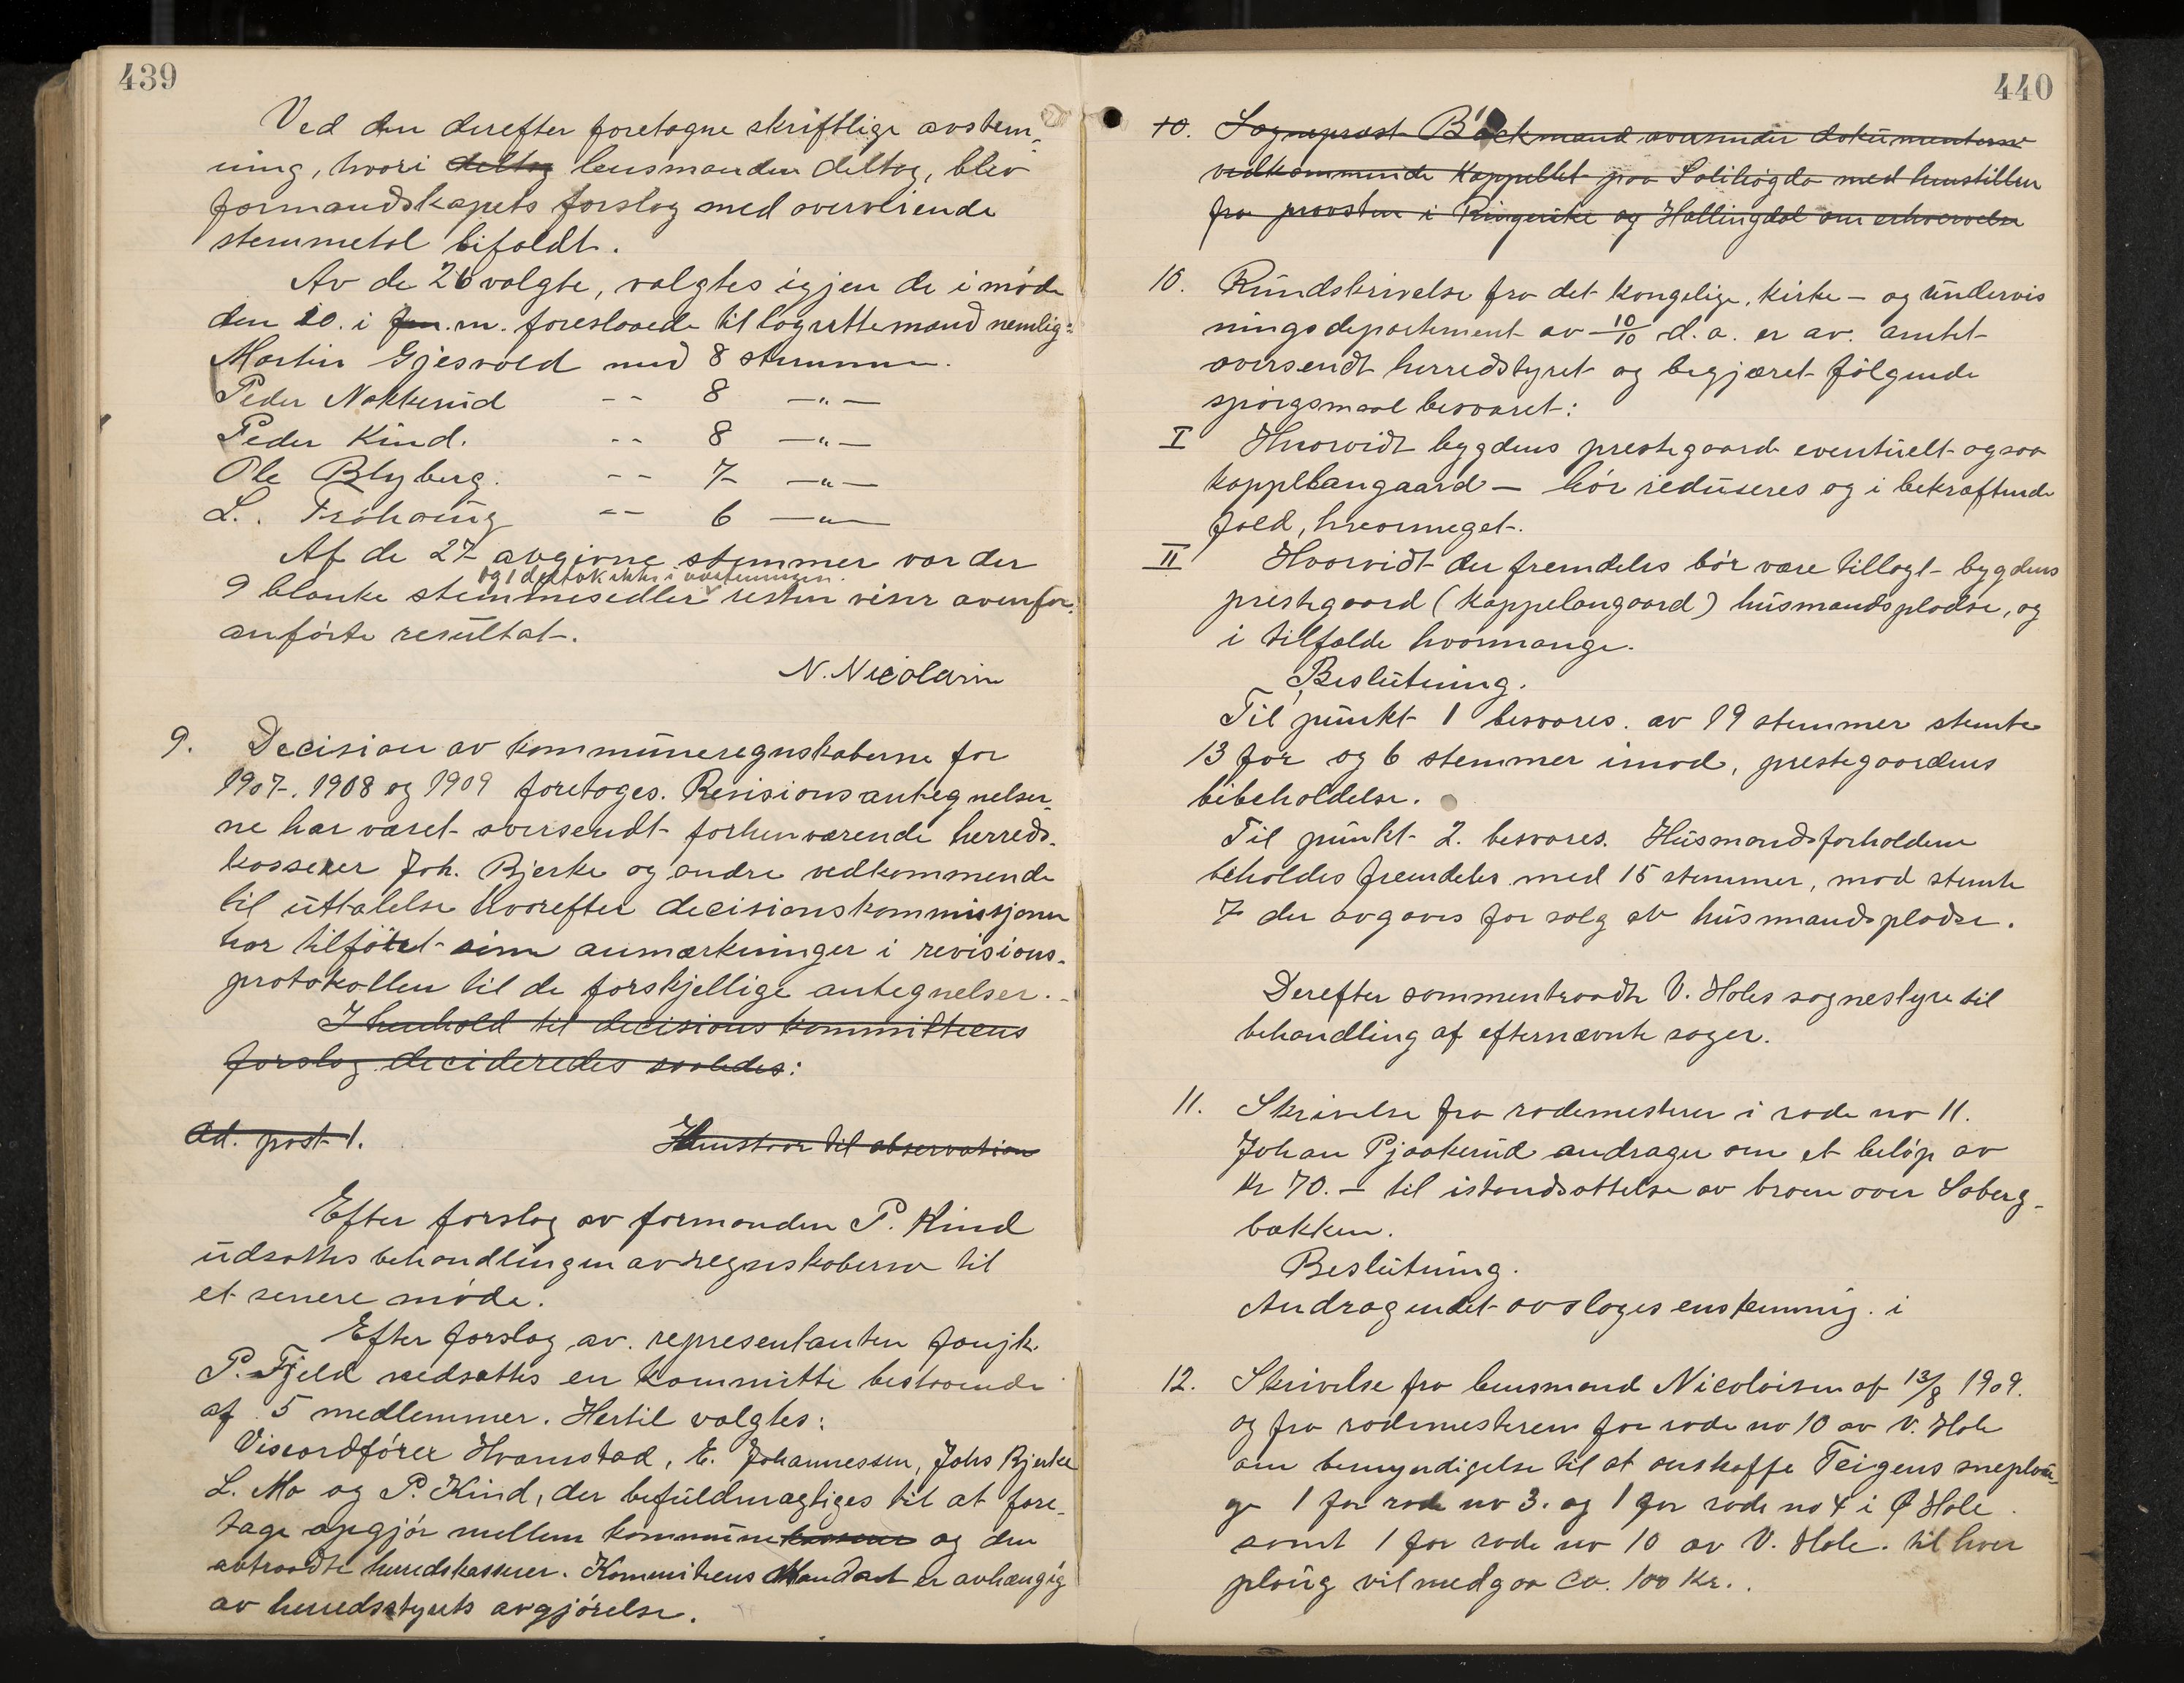 439
Ved den derefter foretagne skriftlige avstem-
ning, hvori deltog lensmanden deltog, blev
formandskapets forslag med overveiende
stemmetal bifaldt.
Av de 26 valgte, valgtes igjen de i møde
den 20. i f.m. foreslaaede til lagrettemænd nemlig:
Martin Gjesvold med 8 stemmer.
Peder Nakkerud -- 8 —"—
Peder Kind. -- 8 —"—
Ole Blyberg. -- 7 —"—
L. Frøhaug -- 6 —"—
Af de 27 avgivne stemmer var der
og 1 deltok ikke i avstemningen.
9 blanke stemmesedler resten viser avenfor
anførte resultat.
N. Nicolaisen
9. Decision av kommuneregnskaberne for
1907, 1908 og 1909 foretages. Revisionsantegnelser-
ne har været oversendt forhenværende herreds-
kasserer Joh. Bjerke og andre vedkommende
til uttalelse hvorefter decisionskommissjonen
har tilføiet sine anmærkninger i revisions-
protokollen til de forskjellige antegnelser.
I henhold til decisionskommitteens
forslag decideredes saaledes:
Ad. post 1. Henstaar til observation
Efter forslag av formanden P. Kind
udsattes behandlingen av regnskaberne til
et senere møde.
Efter forslag av representanten
P. Fjeld nedsattes en kommitte bestaaende
af 5 medlemmer. Hertil valgtes:
Viseordfører Hvamstad, E. Johannessen, Johs Bjerke
L. Mo og P. Kind, der befuldmægtiges til at fore-
tage opgjør mellem kommunekassen og den
avtraadte herredskasserer. Komiteens Mandat er avhængig
av herredsstyrets avgjørelse.
440
10. Sogneprest Bäckmand oversender dokumenterne
vedkommende Kappellet paa Sollihøgda med henstillen
fra provsten i Ringerike og Hallingdal om erhvervelse
10. Rundskrivelse fra det kongelige, kirke- og undervis
ningsdepartement av 10/10 d.a. er av amtet
oversendt herredstyret og begjæret følgende
spørgsmaal besvaret:
I Hvorvidt bygdens prestegaard eventuelt ogsaa
kappellangaard — bør reduseres og i bekræftende
fald, hvormeget.
II Hvorvidt der fremdeles bør være tillagt bygdens
prestegaard (kappelangaard) husmandspladse, og
i tilfælde hvormange.
Beslutning.
Til punkt 1 besvares. av 19 stemmer stemte
13 for og 6 stemmer imod, prestegaardens
bibeholdelse.
Til punkt 2. besvares. Husmandsforholdene
beholdes fremdeles med 15 stemmer, mod stemte
7 der avgaves for salg at husmandspladse.
Derefter sammentraadte V. Holes sognestyre til
behandling af efternævnte sager.
11. Skrivelse fra rodemesteren i rode no 11.
Johan Pjaakerud andrager om et beløp av
Kr 70.— til istandsættelse av broen over Søberg-
bækken.
Beslutning.
Andragendet avslages enstemmig. i
12. Skrivelse fra lensmand Nicolaisen af 13/8 1909.
og fra rodemesteren for rode no 10 av V. Hole
om bemyndigelse til at anskaffe Teigens sneplou-
ge 1 for rode no 3. og 1 for rode no 4 i Ø Hole
samt 1 for rode no 10 av V. Hole. til hver
ploug vil medgaa ca. 100 Kr.